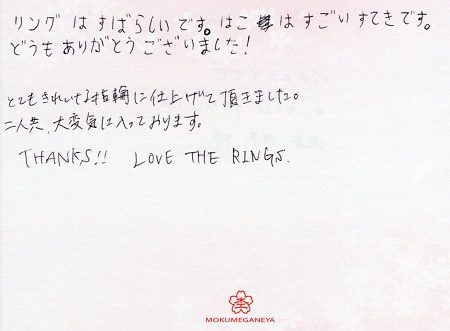 リングはすばらしいです。はこはすごいすてきです。
どうもありがとうございました!
とてもきれいな指輪に仕上げて頂きました。
二人共、大変気に入っております。
THANKS!! LOVE THE RINGS.
MOKUMEGANEYA